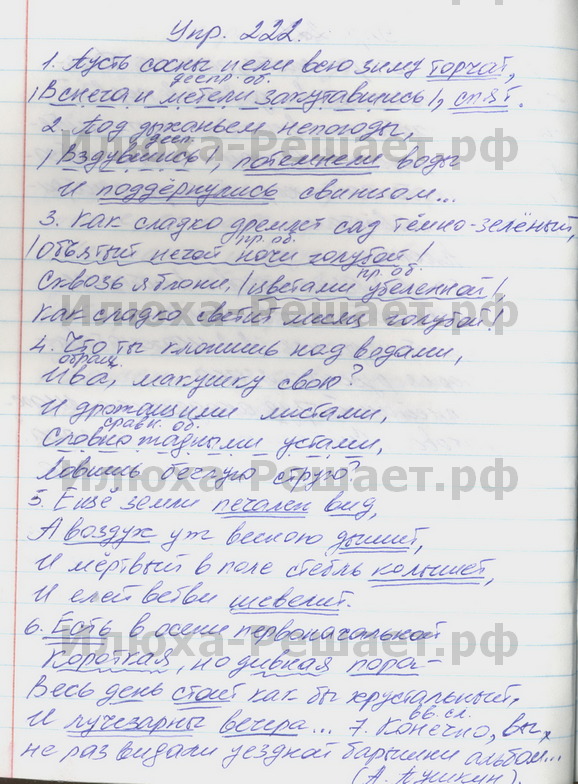 Упр. 222.
1. Пусть сосны и ели всю зиму торчат,
дееепр. об.
|В снега и метели закутавшись|, спят.
2. Под дыханьем непогоды,
дееп.
|Вздувшись|, потемнели воды
И поддёрнулись свинцом...
3. Как сладко дремлет сад тёмно-зелёный,
|Объятый негой ночи голубой|!
пр. об.
пр. об.
Сквозь яблони, |цветами убеленной|,
Как сладко светит месяц голубой!
4. Что ты клонишь над водами,
обращ.
Ива, макушку свою?
И дрожащими листами,
сравн. об.
Словно жадными устами,
Ловишь беглую струю?
5. Ещё земли печален вид,
А воздух уж весною дышит,
И мёртвый в поле стебль колышет,
И елей ветви шевелит.
6. Есть в осени первоначальной
Короткая, но дивная пора -
Весь день стоит как бы хрустальный,
И лучезарны вечера... 7. Конечно, вы,
вв. сл.
не раз видали уездной барышни альбом...
(А. Пушкин).
Илюха-Решает.рф
Илюха-Решает.рф
Илюха-Решает.рф
Илюха-Решает.рф
Илюха-Решает.рф